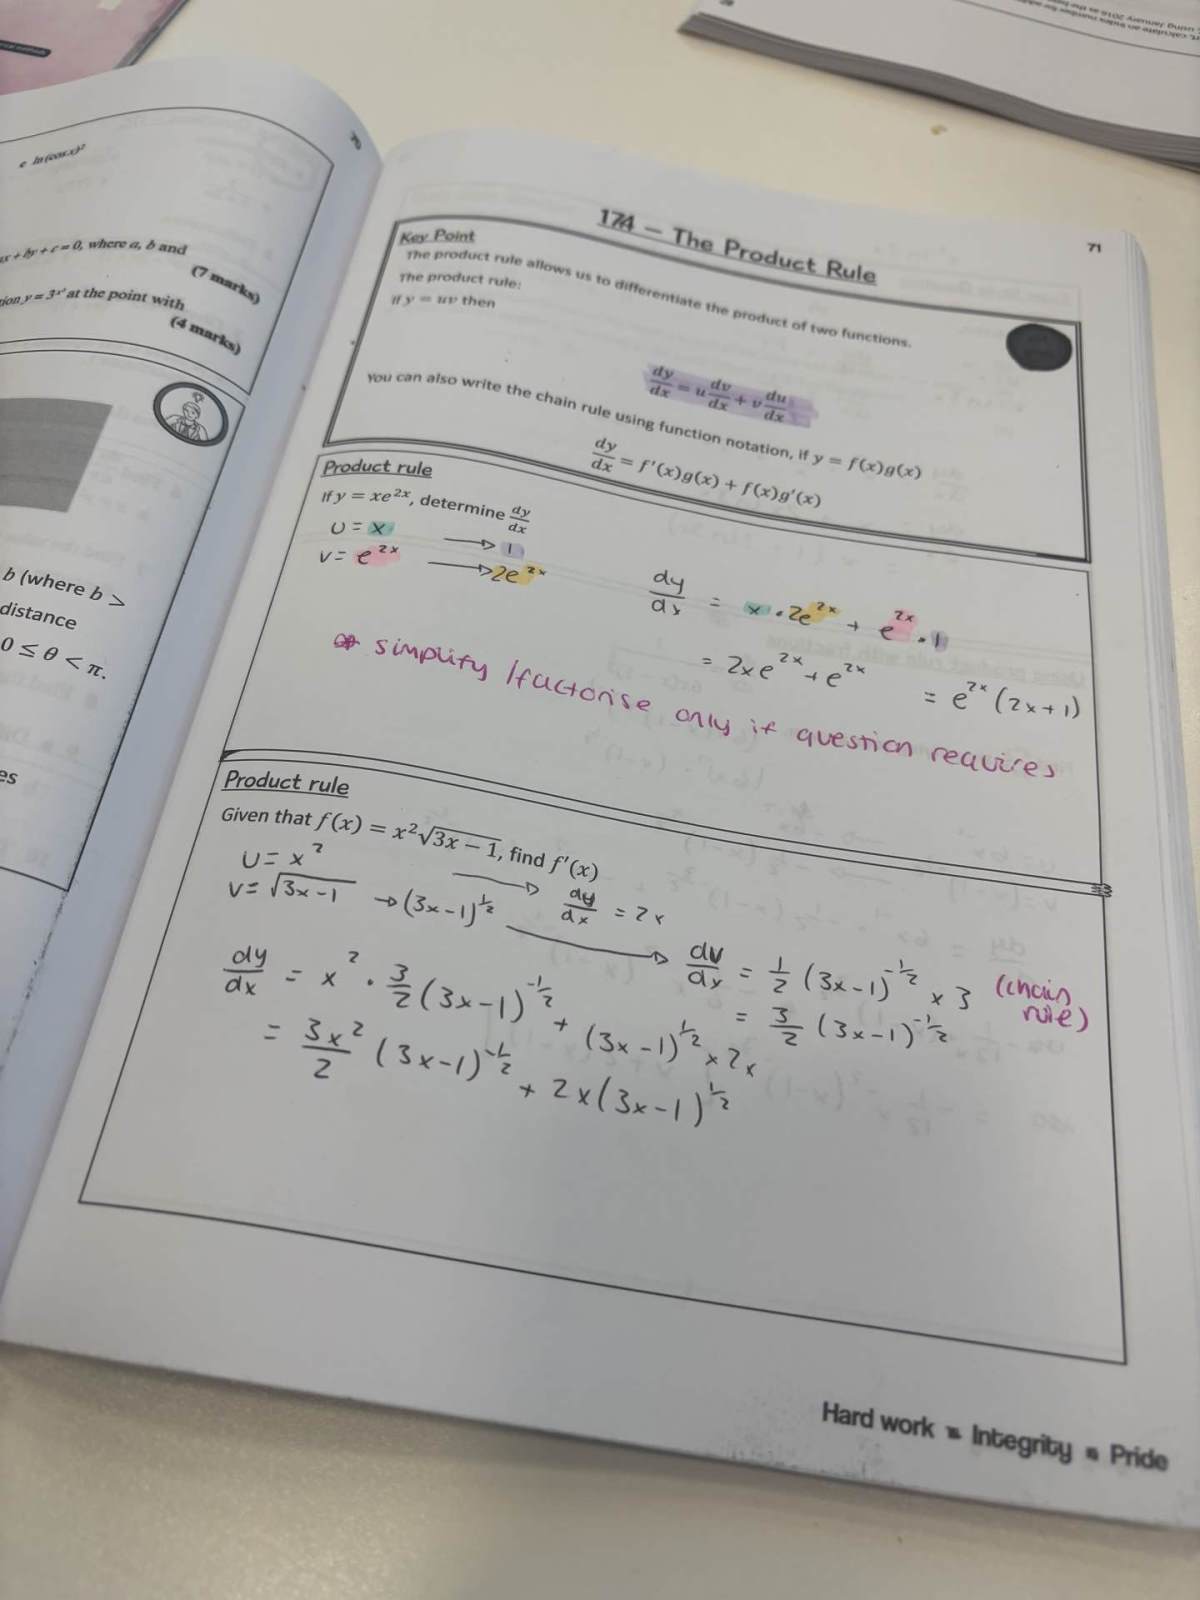 e ln(cos x)²
ax + by + c = 0, where a, b and
(7 marks)
y = 3ˣ' at the point with
(4 marks)
b (where b >
distance
0 ≤ θ < π.
es
70
71
174 – The Product Rule
Key Point
The product rule allows us to differentiate the product of two functions.
The product rule:
If y = uv then
dy/dx = u dv/dx + v du/dx
You can also write the chain rule using function notation, if y = f(x)g(x)
dy/dx = f'(x)g(x) + f(x)g'(x)
Product rule
If y = xe²ˣ, determine dy/dx
U = x → 1
V = e²ˣ → 2e²ˣ
dy/dx = x · 2e²ˣ + e²ˣ · 1
= 2xe²ˣ + e²ˣ = e²ˣ (2x+1)
simplify /factorise only if question requires
Product rule
Given that f(x) = x²√(3x − 1), find f'(x)
U = x² → dy/dx = 2x
V = √(3x−1) → (3x−1)^½ → dv/dx = ½ (3x−1)^-½ × 3 (chain rule)
= 3/2 (3x−1)^-½
dy/dx = x² · 3/2 (3x−1)^-½ + (3x−1)^½ × 2x
= 3x²/2 (3x−1)^-½ + 2x(3x−1)^½
Hard work Integrity Pride